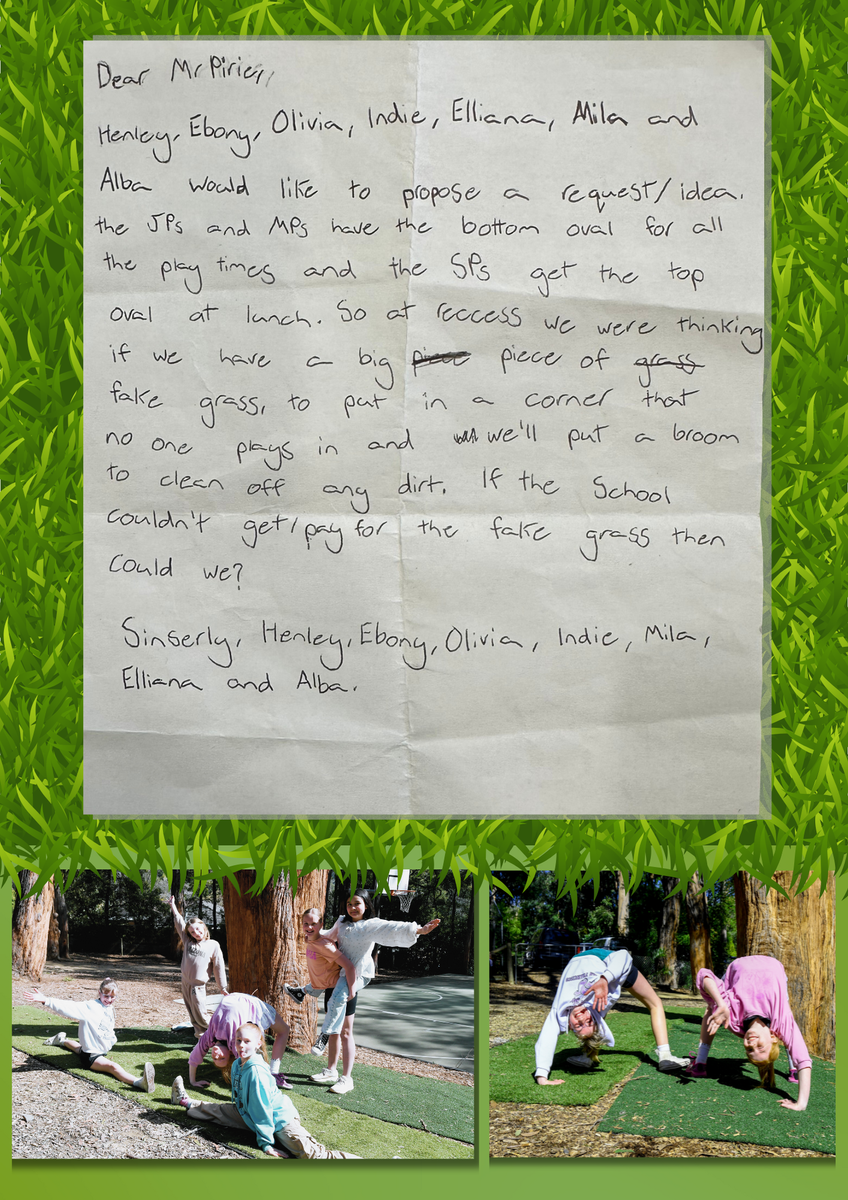 Dear Mr Pirie,
Henley, Ebony, Olivia, Indie, Elliana, Mila and
Alba would like to propose a request/idea.
the JPs and MPs have the bottom oval for all
the play times and the SPs get the top
oval at lunch. So at reccess we were thinking
if we have a big piece piece of grass
fake grass, to put in a corner that
no one plays in and we'll put a broom
to clean off any dirt. If the School
couldn't get/pay for the fake grass then
Could we?
Sinserly, Henley, Ebony, Olivia, Indie, Mila,
Elliana and Alba.